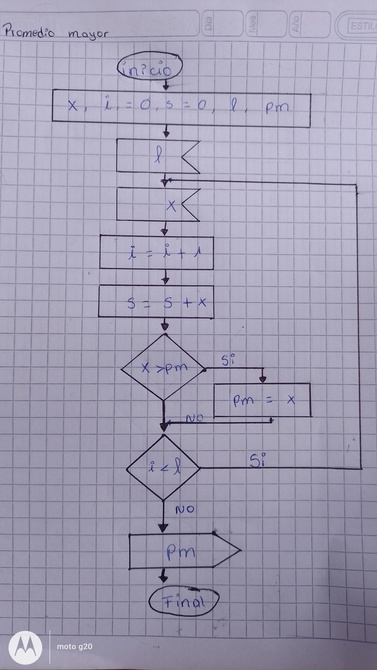 Promedio mayor
Día
Mes
Año
ESTILO
inicio
x, i = 0, s = 0, l, pm
l
x
i = i + 1
s = s + x
x > pm
Si
pm = x
NO
i < l
Si
NO
pm
Final
moto g20